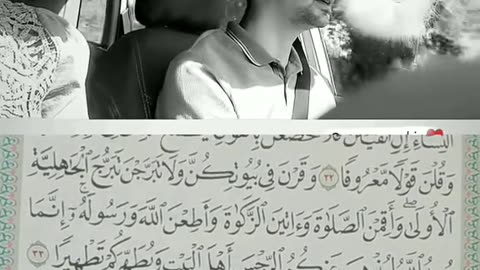 ٱلنِّسَآءِ إِنِ ٱتَّقَيْتُنَّ فَلَا تَخْضَعْنَ بِٱلْقَوْلِ
وَقُلْنَ قَوْلًا مَّعْرُوفًا ٣٢ وَقَرْنَ فِى بُيُوتِكُنَّ وَلَا تَبَرَّجْنَ تَبَرُّجَ ٱلْجَٰهِلِيَّةِ
ٱلْأُولَىٰ وَأَقِمْنَ ٱلصَّلَوٰةَ وَءَاتِينَ ٱلزَّكَوٰةَ وَأَطِعْنَ ٱللَّهَ وَرَسُولَهُۥٓ إِنَّمَا
ٱللَّهُ لِيُذْهِبَ عَنكُمُ ٱلرِّجْسَ أَهْلَ ٱلْبَيْتِ وَيُطَهِّرَكُمْ تَطْهِيرًا ٣٣